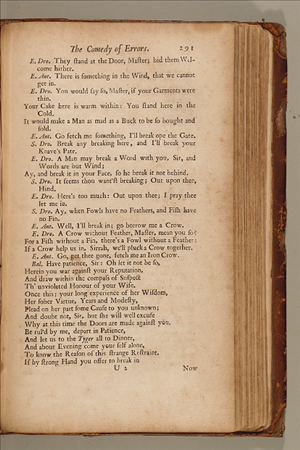 The Comedy of Errors. 291
E. Dro. They stand at the Door, Master; bid them Wel-
come hither.
E. Ant. There is something in the Wind, that we cannot
get in.
E. Dro. You would say so, Master, if your Garments were
thin.
Your Cake here is warm within: You stand here in the
Cold.
It would make a Man as mad as a Buck to be so bought and
sold.
E. Ant. Go fetch me something, I'll break ope the Gate.
S. Dro. Break any breaking here, and I'll break your
Knave's Pate.
E. Dro. A Man may break a Word with you, Sir, and
Words are but Wind;
Ay, and break it in your Face, so he break it not behind.
S. Dro. It seems thou want'st breaking; Out upon thee,
Hind.
E. Dro. Here's too much: Out upon thee; I pray thee
let me in.
S. Dro. Ay, when Fowls have no Feathers, and Fish have
no Fin.
E. Ant. Well, I'll break in; go borrow me a Crow.
E. Dro. A Crow without Feather, Master, mean you so?
For a Fish without a Fin, there's a Fowl without a Feather:
If a Crow help us in, Sirrah, we'll pluck a Crow together.
E. Ant. Go, get thee gone, fetch me an Iron Crow.
Bal. Have patience, Sir: Oh let it not be so,
Herein you war against your Reputation,
And draw within the compass of Suspect
Th' unviolated Honour of your Wife.
Once this; your long experience of her Wisdom,
Her sober Virtue, Years and Modesty,
Plead on her part some Cause to you unknown;
And doubt not, Sir, but she will well excuse
Why at this time the Doors are made against you.
Be rul'd by me, depart in Patience,
And let us to the Tyger all to Dinner,
And about Evening come your self alone,
To know the Reason of this strange Restraint.
If by strong Hand you offer to break in
U 2 Now